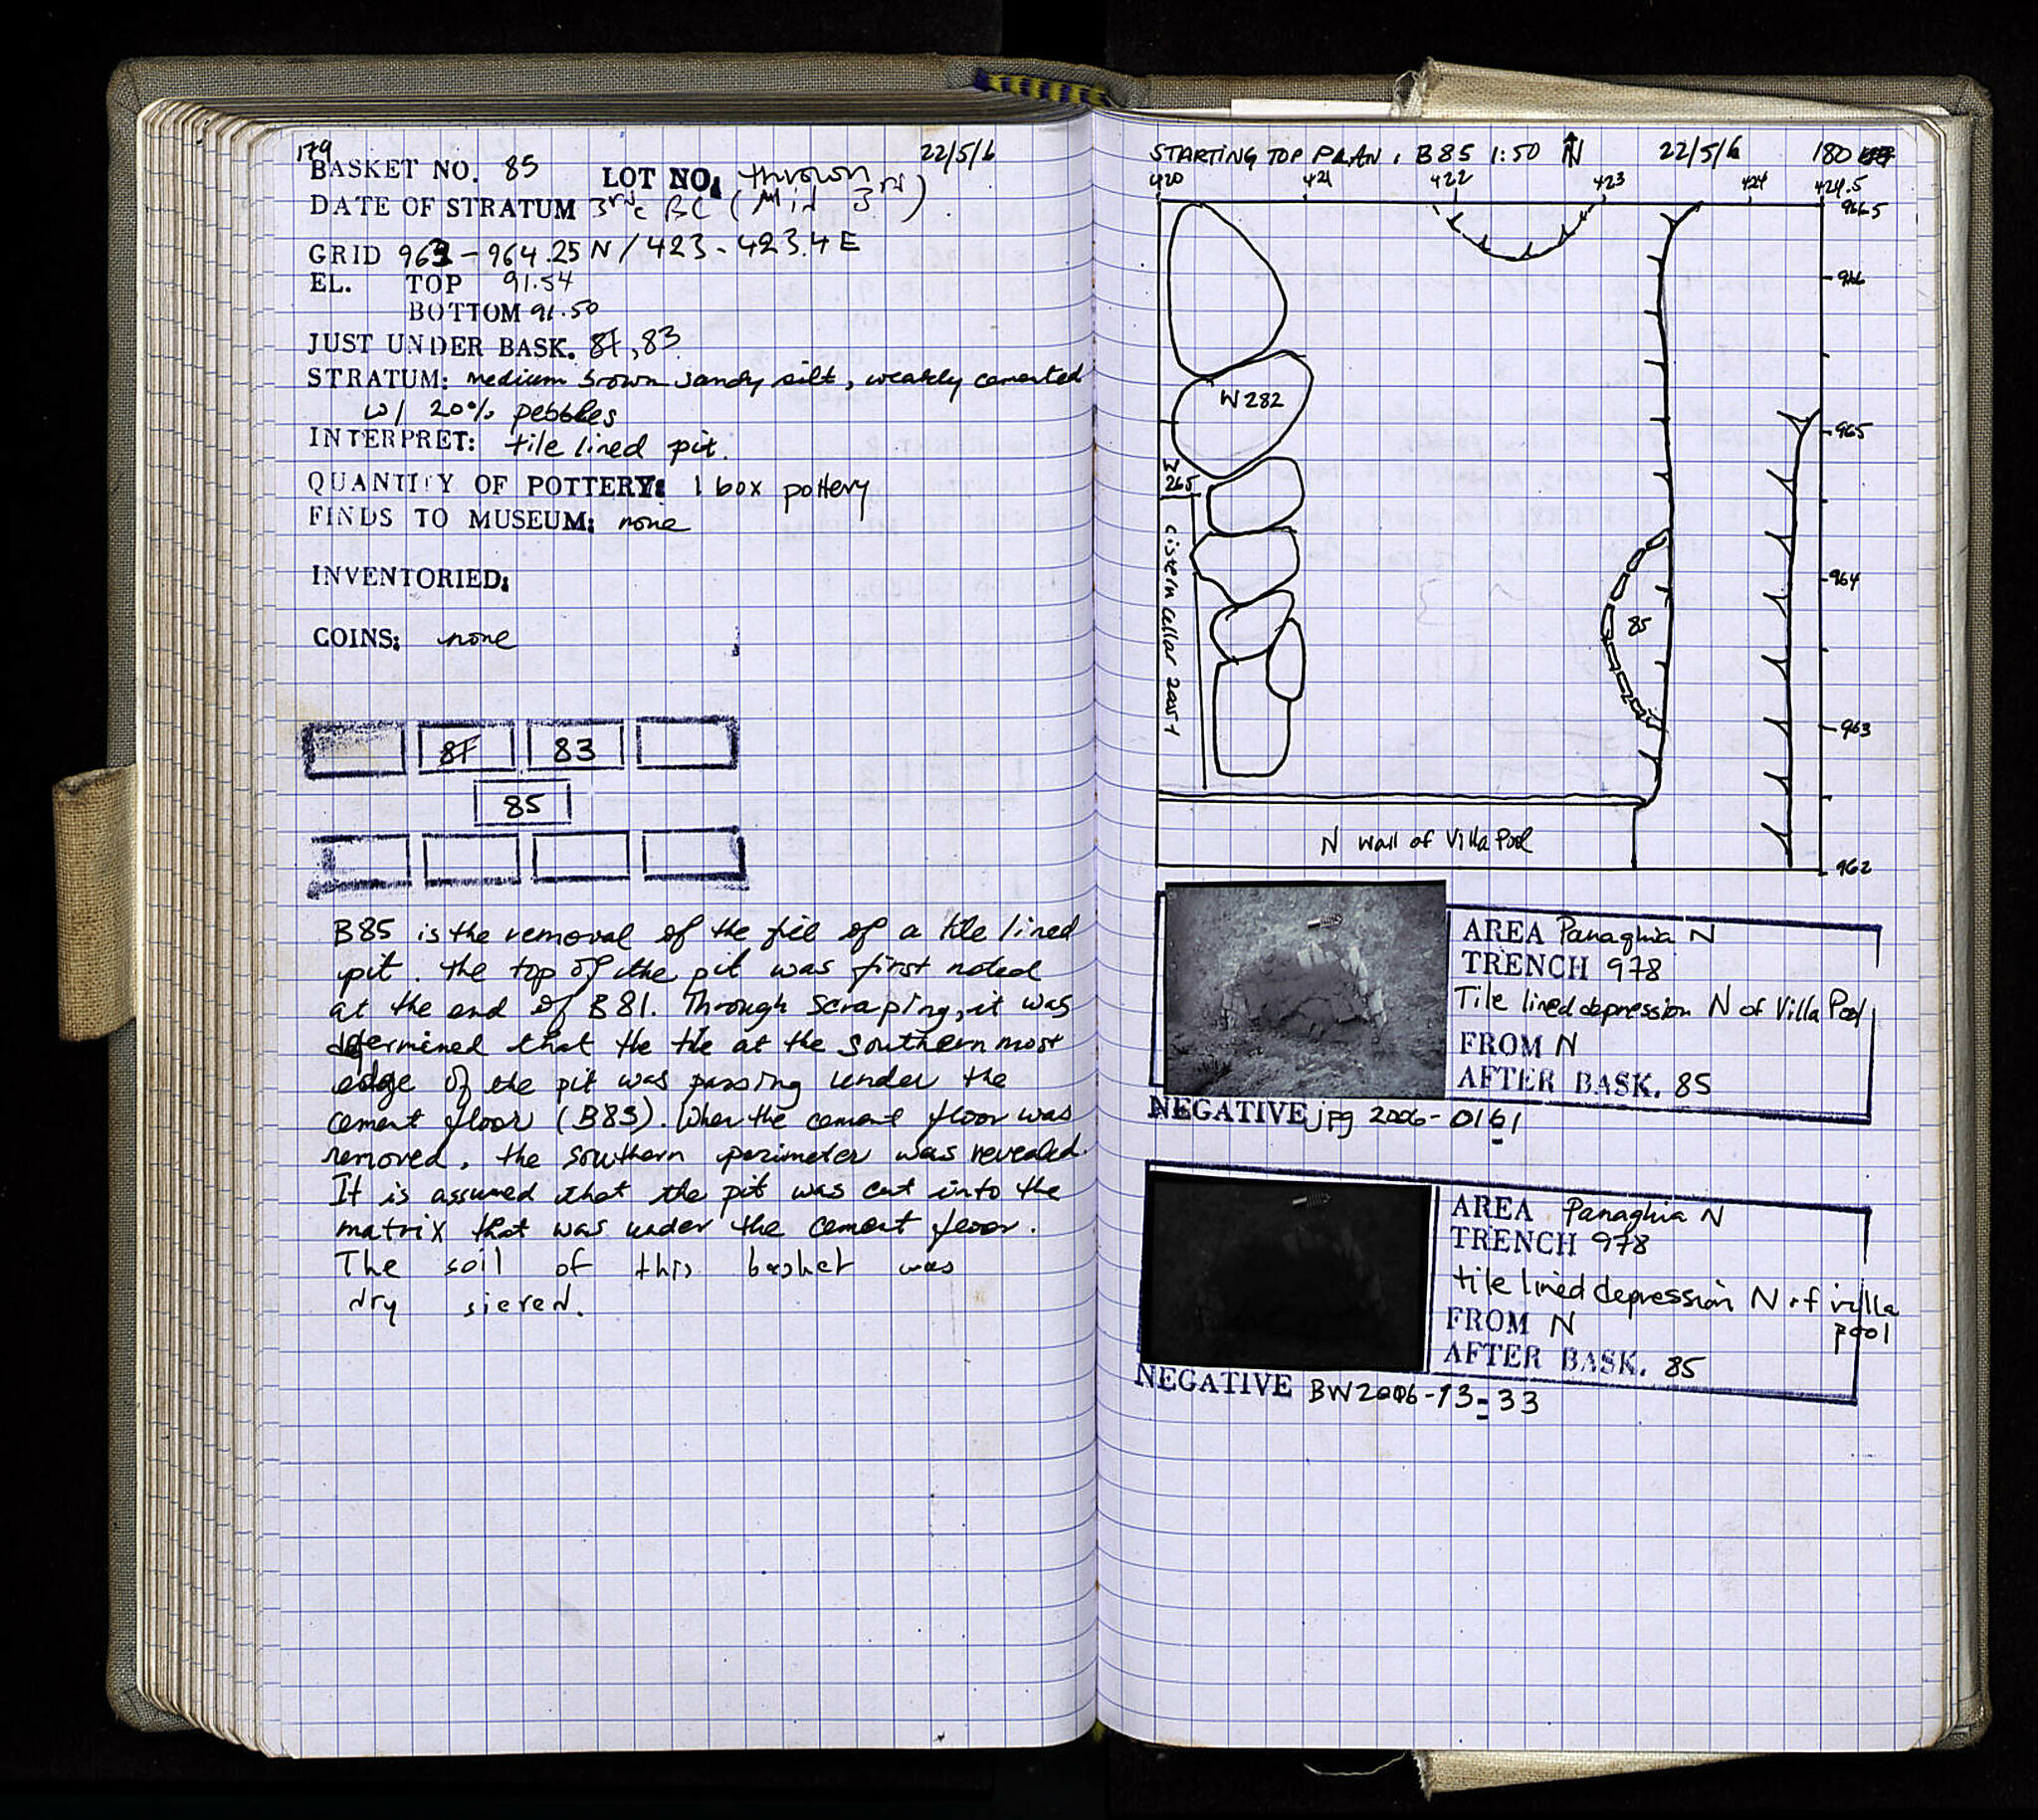 179
22/5/6
BASKET NO. 85 LOT NO: thrown
DATE OF STRATUM 3rd c BC (Mid 3rd)
GRID 963-964.25 N / 423-423.4 E
EL. TOP 91.54
BOTTOM 91.50
JUST UNDER BASK. 81, 83
STRATUM: medium brown sandy silt, weakly cemented
w/ 20% pebbles
INTERPRET: tile lined pit.
QUANTITY OF POTTERY: 1 box pottery
FINDS TO MUSEUM: none
INVENTORIED:
COINS: none
81 83
85
B85 is the removal of the fill of a tile lined
pit. The top of the pit was first noted
at the end of B81. Through scraping, it was
determined that the tile at the southern most
edge of the pit was passing under the
cement floor (B83). When the cement floor was
removed, the southern perimeter was revealed.
It is assumed that the pit was cut into the
matrix that was under the cement floor.
The soil of this basket was
dry sieved.
STARTING TOP PLAN, B85 1:50 N 22/5/6 180
420 421 422 423 424 424.5
966.5
966
W 282
965
W
265
cistern cellar 2005-1
964
85
963
N wall of Villa Pool
962
AREA Panaghia N
TRENCH 978
Tile lined depression N of Villa Pool
FROM N
AFTER BASK. 85
NEGATIVE jpg 2006-0161
AREA Panaghia N
TRENCH 978
tile lined depression N of villa
pool
FROM N
AFTER BASK. 85
NEGATIVE BW 2006-13-33